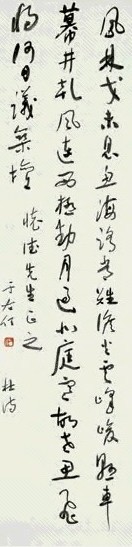 風林戈未息魚海路常難候火雲峰峻懸軍
幕井乾風連西極動月過北庭寒故老思飛
將何日議築壇
杜詩
懷德先生正之
于右任